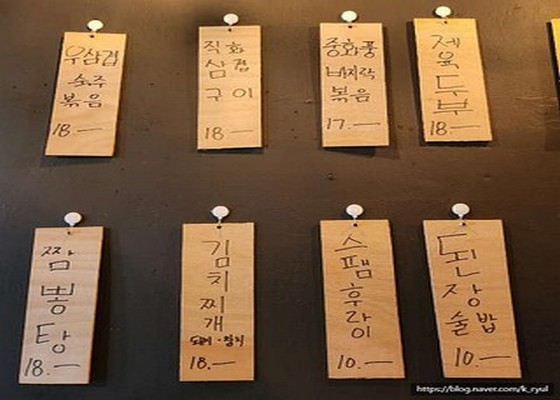 우삼겹
숙주
볶음
18.—
직화
삼겹
구이
18.—
중화풍
바지락
볶음
17.—
제육두부
18.—
짬뽕탕
18.—
김치찌개
돼지·참치
18.—
스팸후라이
10.—
된장술밥
10.—
https://blog.naver.com/k_ryul